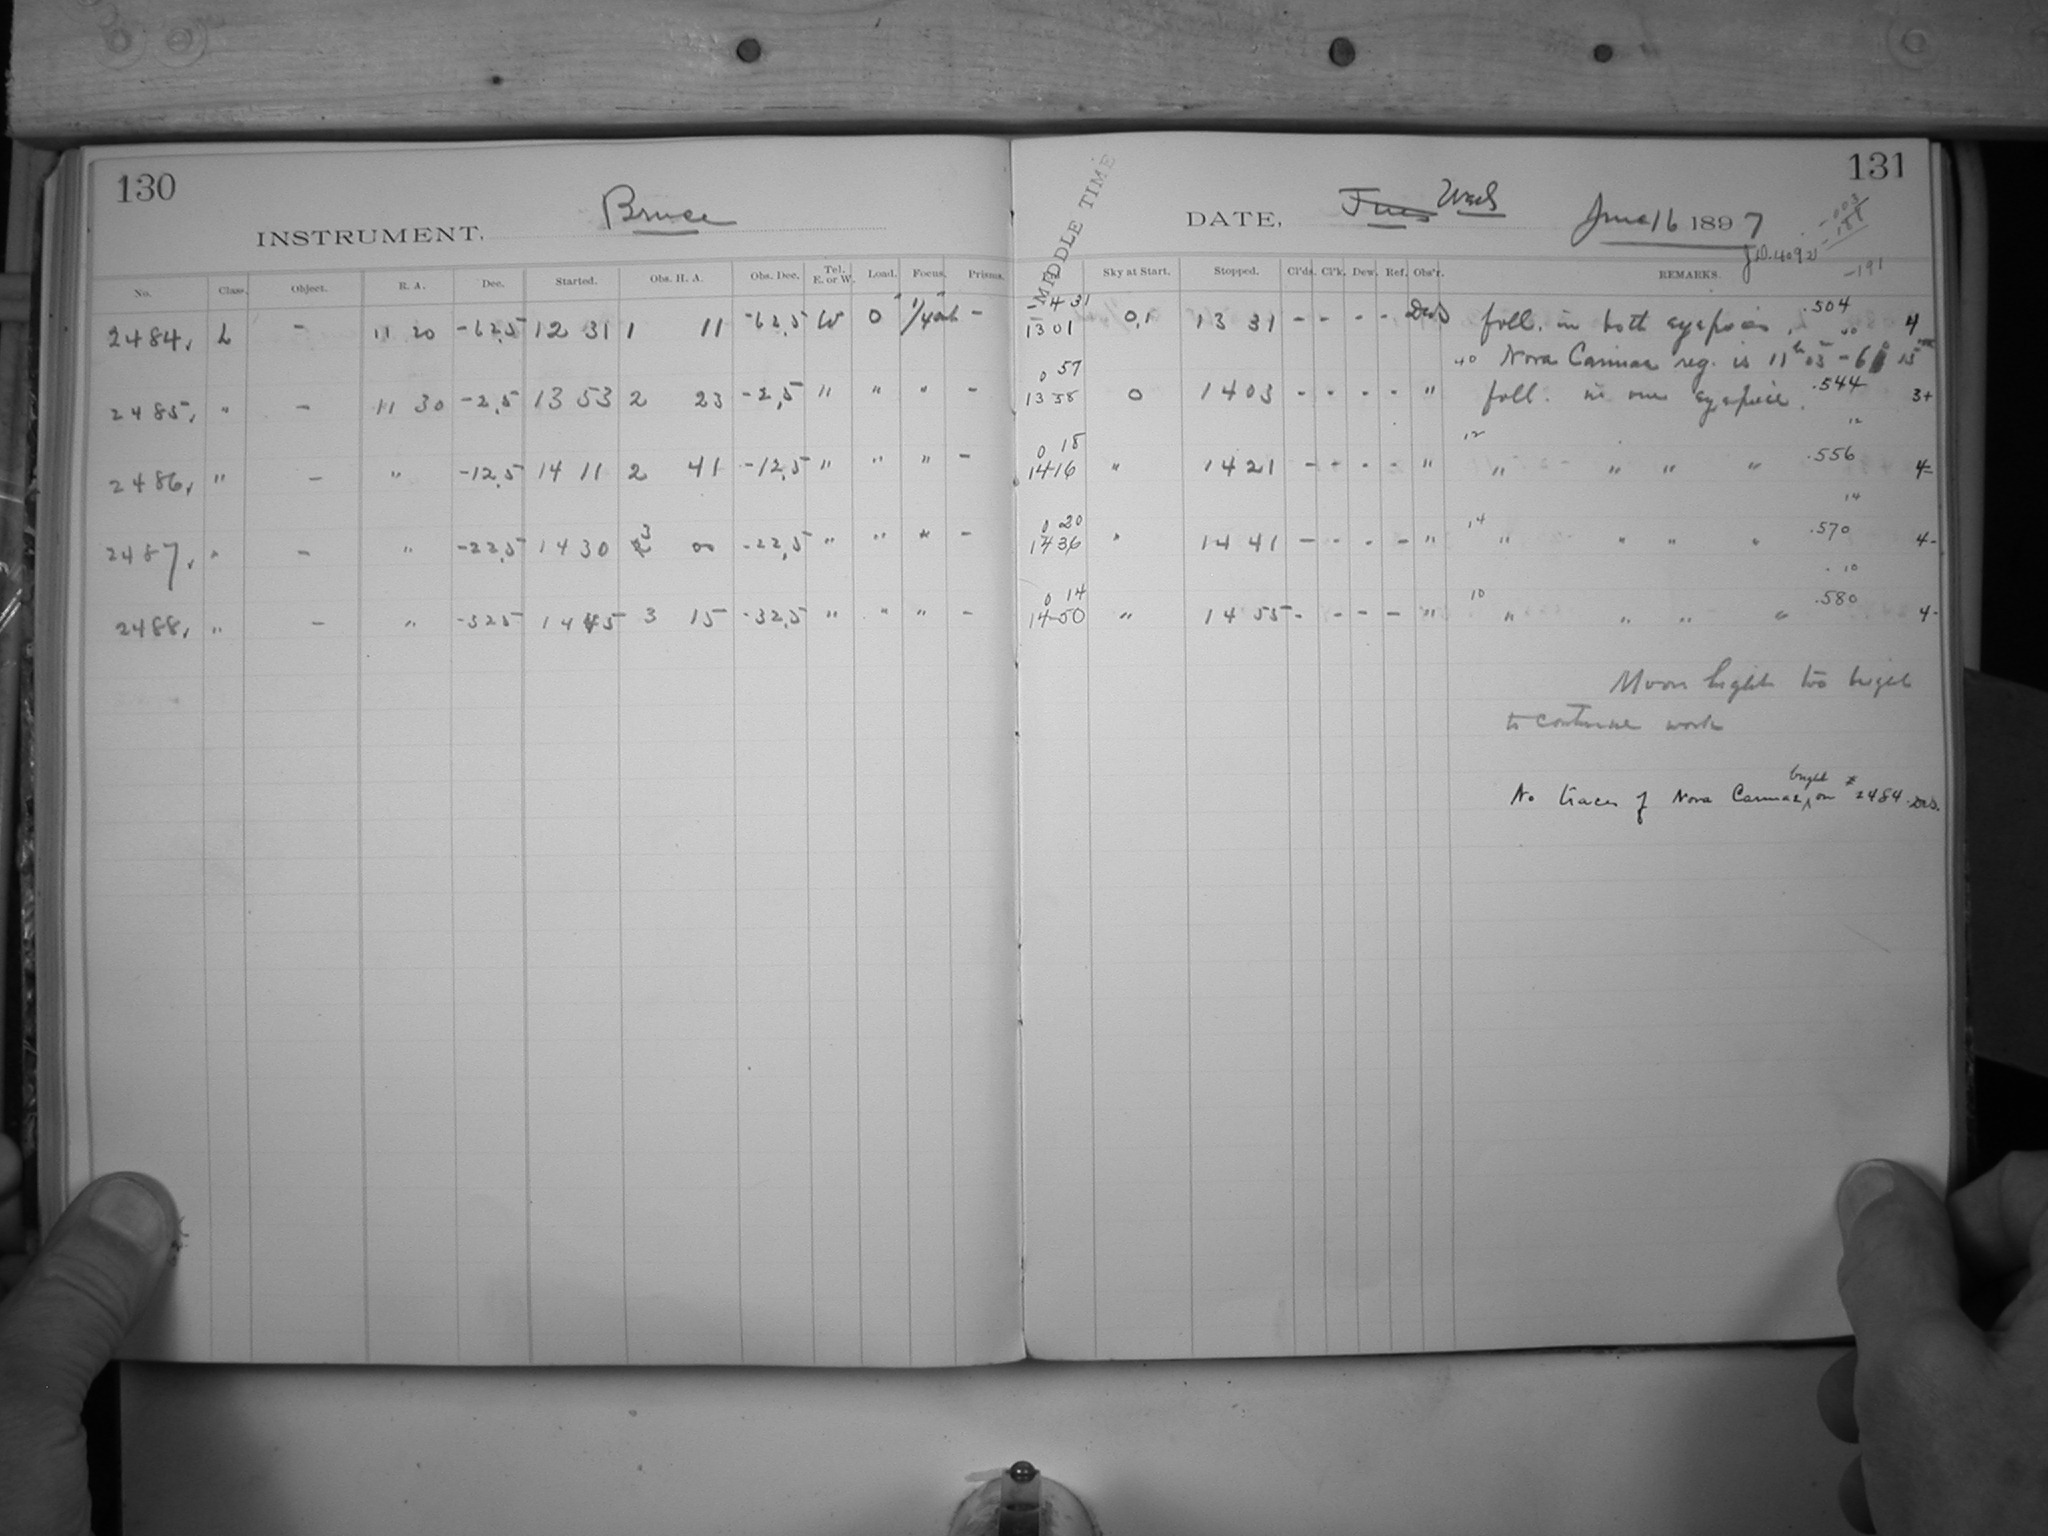 130
INSTRUMENT, Bruce
No. Class. Object. R. A. Dec. Started. Obs. H. A. Obs. Dec. Tel. E. or W. Load. Focus. Prisms.
2484, L - 11 20 -62,5 12 31 1 11 -62,5 W 0 -
2485, " - 11 30 -2,5 13 53 2 23 -2,5 " " " -
2486, " - " -12,5 14 11 2 41 -12,5 " " " -
2487, " - " -22,5 14 30 3 00 -22,5 " " " -
2488, " - " -325 14 45 3 15 -32,5 " " " -
131
MIDDLE TIME
DATE, Tues Wed June 16 1897
J.D. 4092
-191
Sky at Start. Stopped. Cl'ds. Cl'k. Dew. Ref. Obs'r. REMARKS.
-4 31
1301 0,1 13 31 - - - - foll. in both eyepieces, .504 4
40 Nova Carinae reg. is 11h 03m -61° 15m
0 57
1358 0 1403 - - - - " foll. in one eyepiece. .544 3+
0 18 12 12
1416 " 1421 - - - - " " " " " .556 4=
0 20 14 14
1436 " 1441 - - - - " " " " " .570 4-
0 14 10 10
1450 " 1455 - - - - " " " " " .580 4-
Moon light too bright
to continue work
No traces of Nova Carinae, bright on # 2484. DeS.